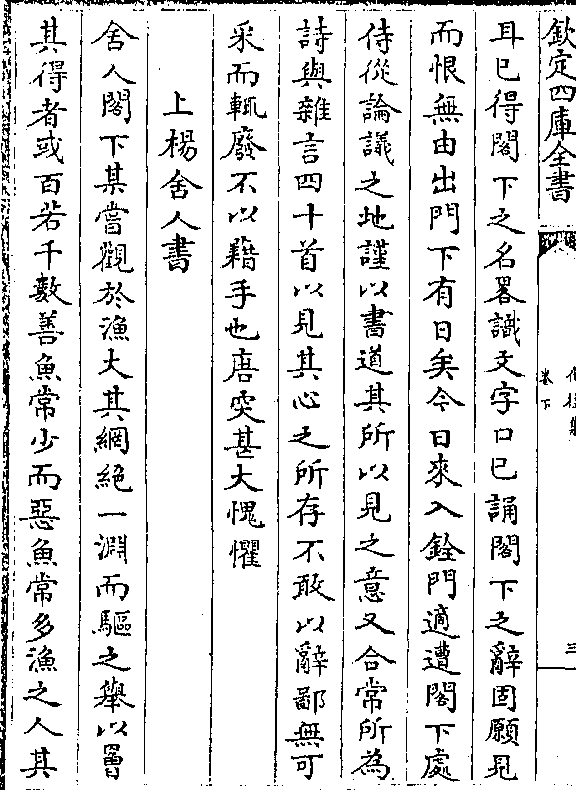 欽定四庫全書
卷下
三
耳已得閣下之名畧識文字口已誦閣下之辭固願見
而恨無由出門下有日矣今日來入銓門適遭閣下處
侍從論議之地謹以書道其所以見之意又合常所為
詩與雜言四十首以見其心之所存不敢以辭鄙無可
采而輒廢不以藉手也唐突甚大愧懼
上楊舍人書
舍人閣下某嘗觀於漁大其網絕一淵而驅之舉以罾
其得者或百若千數善魚常少而惡魚常多漁之人其